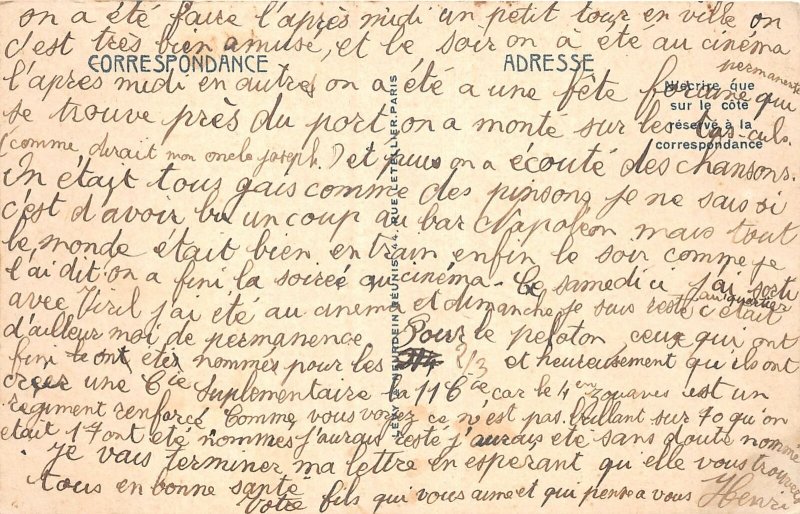 on a été faire l'après midi un petit tour en ville on
c'est très bien amusé, et le soir on a été au cinéma
CORRESPONDANCE
ADRESSE
l'après midi en outre on a été a une fête foraine qui
permanente
N'écrire que
sur le côté
réservé à la
correspondance
se trouve près du port on a monté sur les tas-culs.
(comme dirait mon oncle joseph.) et puis on a écouté des chansons.
On était tous gais comme des pinsons je ne sais si
c'est d'avoir bu un coup au bar Napoléon mais tout
le monde était bien en train enfin le soir comme je
l'ai dit on a fini la soirée au cinéma - Ce samedi ci j'ai sorti
avec Viril j'ai été au cinema et dimanche je suis resté c'était
au quartier
d'ailleur moi de permanence Pour le peloton, ceux qui ont
fini ont été nommés pour les 2/3 et heureusement qu'ils ont
creer une Cie suplementaire la 11 6 Cie car le 4 em zouaves est un
regiment renforcé Comme vous voyez ce n'est pas brillant sur 70 qu'on
était 17 ont été nommés j'aurais resté j'aurais été sans doute nommé
Je vais terminer ma lettre en esperant qu'elle vous trouvera
tous en bonne santé
Votre fils qui vous aime et qui pense a vous Henri
LEVY ET NEURDEIN RÉUNIS, 44, RUE LETELLIER, PARIS